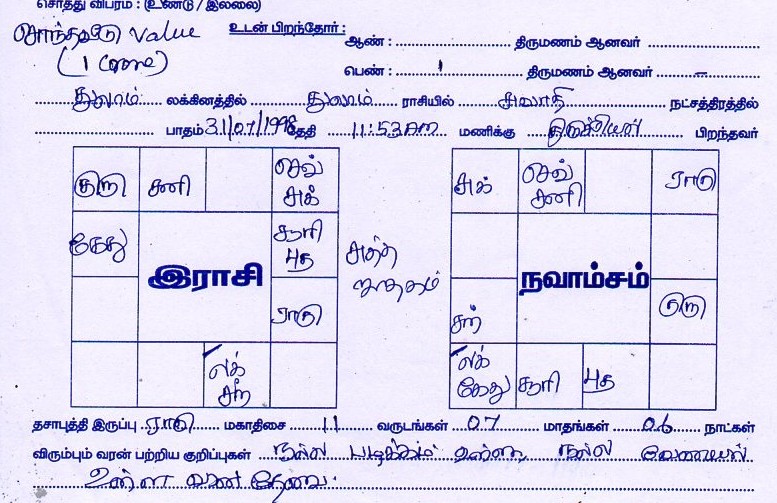 சொத்து விபரம் : (உண்டு / இல்லை)
சொந்தவீடு value உடன் பிறந்தோர் : ஆண் : திருமணம் ஆனவர்
பெண் : 1 திருமணம் ஆனவர் –
துலாம் லக்கினத்தில் துலாம் ராசியில் சுவாதி நட்சத்திரத்தில்
பாதம் 31/07/1998 தேதி 11:53 AM மணிக்கு பிறந்தவர்
குரு சனி செவ் சுக்
கேது சூரி புத
இராசி
ராகு
லக் சந்
சுத்த ஜாதகம்
சுக் செவ் சனி ராகு
நவாம்சம்
சந் குரு
லக் கேது சூரி புத
தசாபுத்தி இருப்பு ராகு மகாதிசை 11 வருடங்கள் 07 மாதங்கள் 06 நாட்கள்
விரும்பும் வரன் பற்றிய குறிப்புகள் நல்ல படிக்கம் உள்ள நல்ல வேலையில்
உள்ள வரன் தேவை.